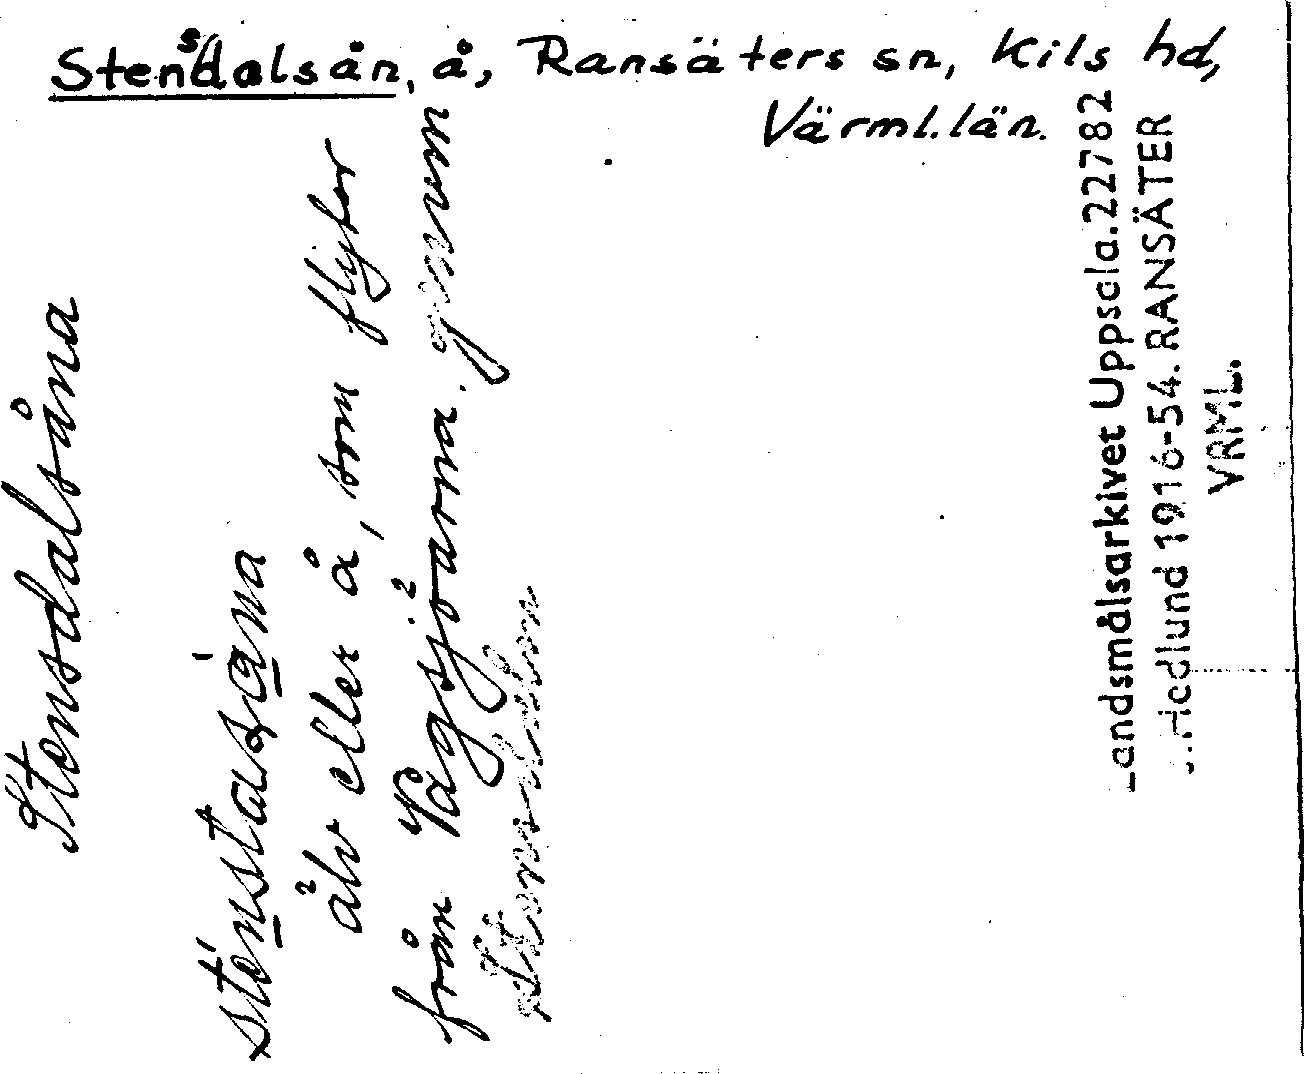 Stensdalsån, å, Ransäters sn, Kils hd,
Värml. län.
Stensdalsåna
stenstasána
älv eller å, som flyter
från Vågsjöarna genum
Stensdalen
Landsmålsarkivet Uppsala. 22782
Hedlund 1916-54. RANSÄTER
VRML.